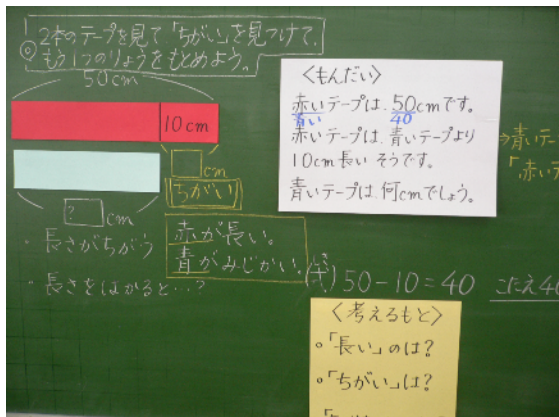 ◎2本のテープを見て「ちがい」を見つけて、
もう1つのりょうをもとめよう。
50cm
10cm
cm
ちがい
? cm
・長さがちがう
・長さをはかると…?
赤が長い。
青がみじかい。
<もんだい>
赤いテープは、50cmです。
青い 40
赤いテープは、青いテープより
10cm長いそうです。
青いテープは、何cmでしょう。
⇒青いテー
「赤いテ
(式) 50-10=40 こたえ40
<考えるもと>
。「長い」のは?
。「ちがい」は?